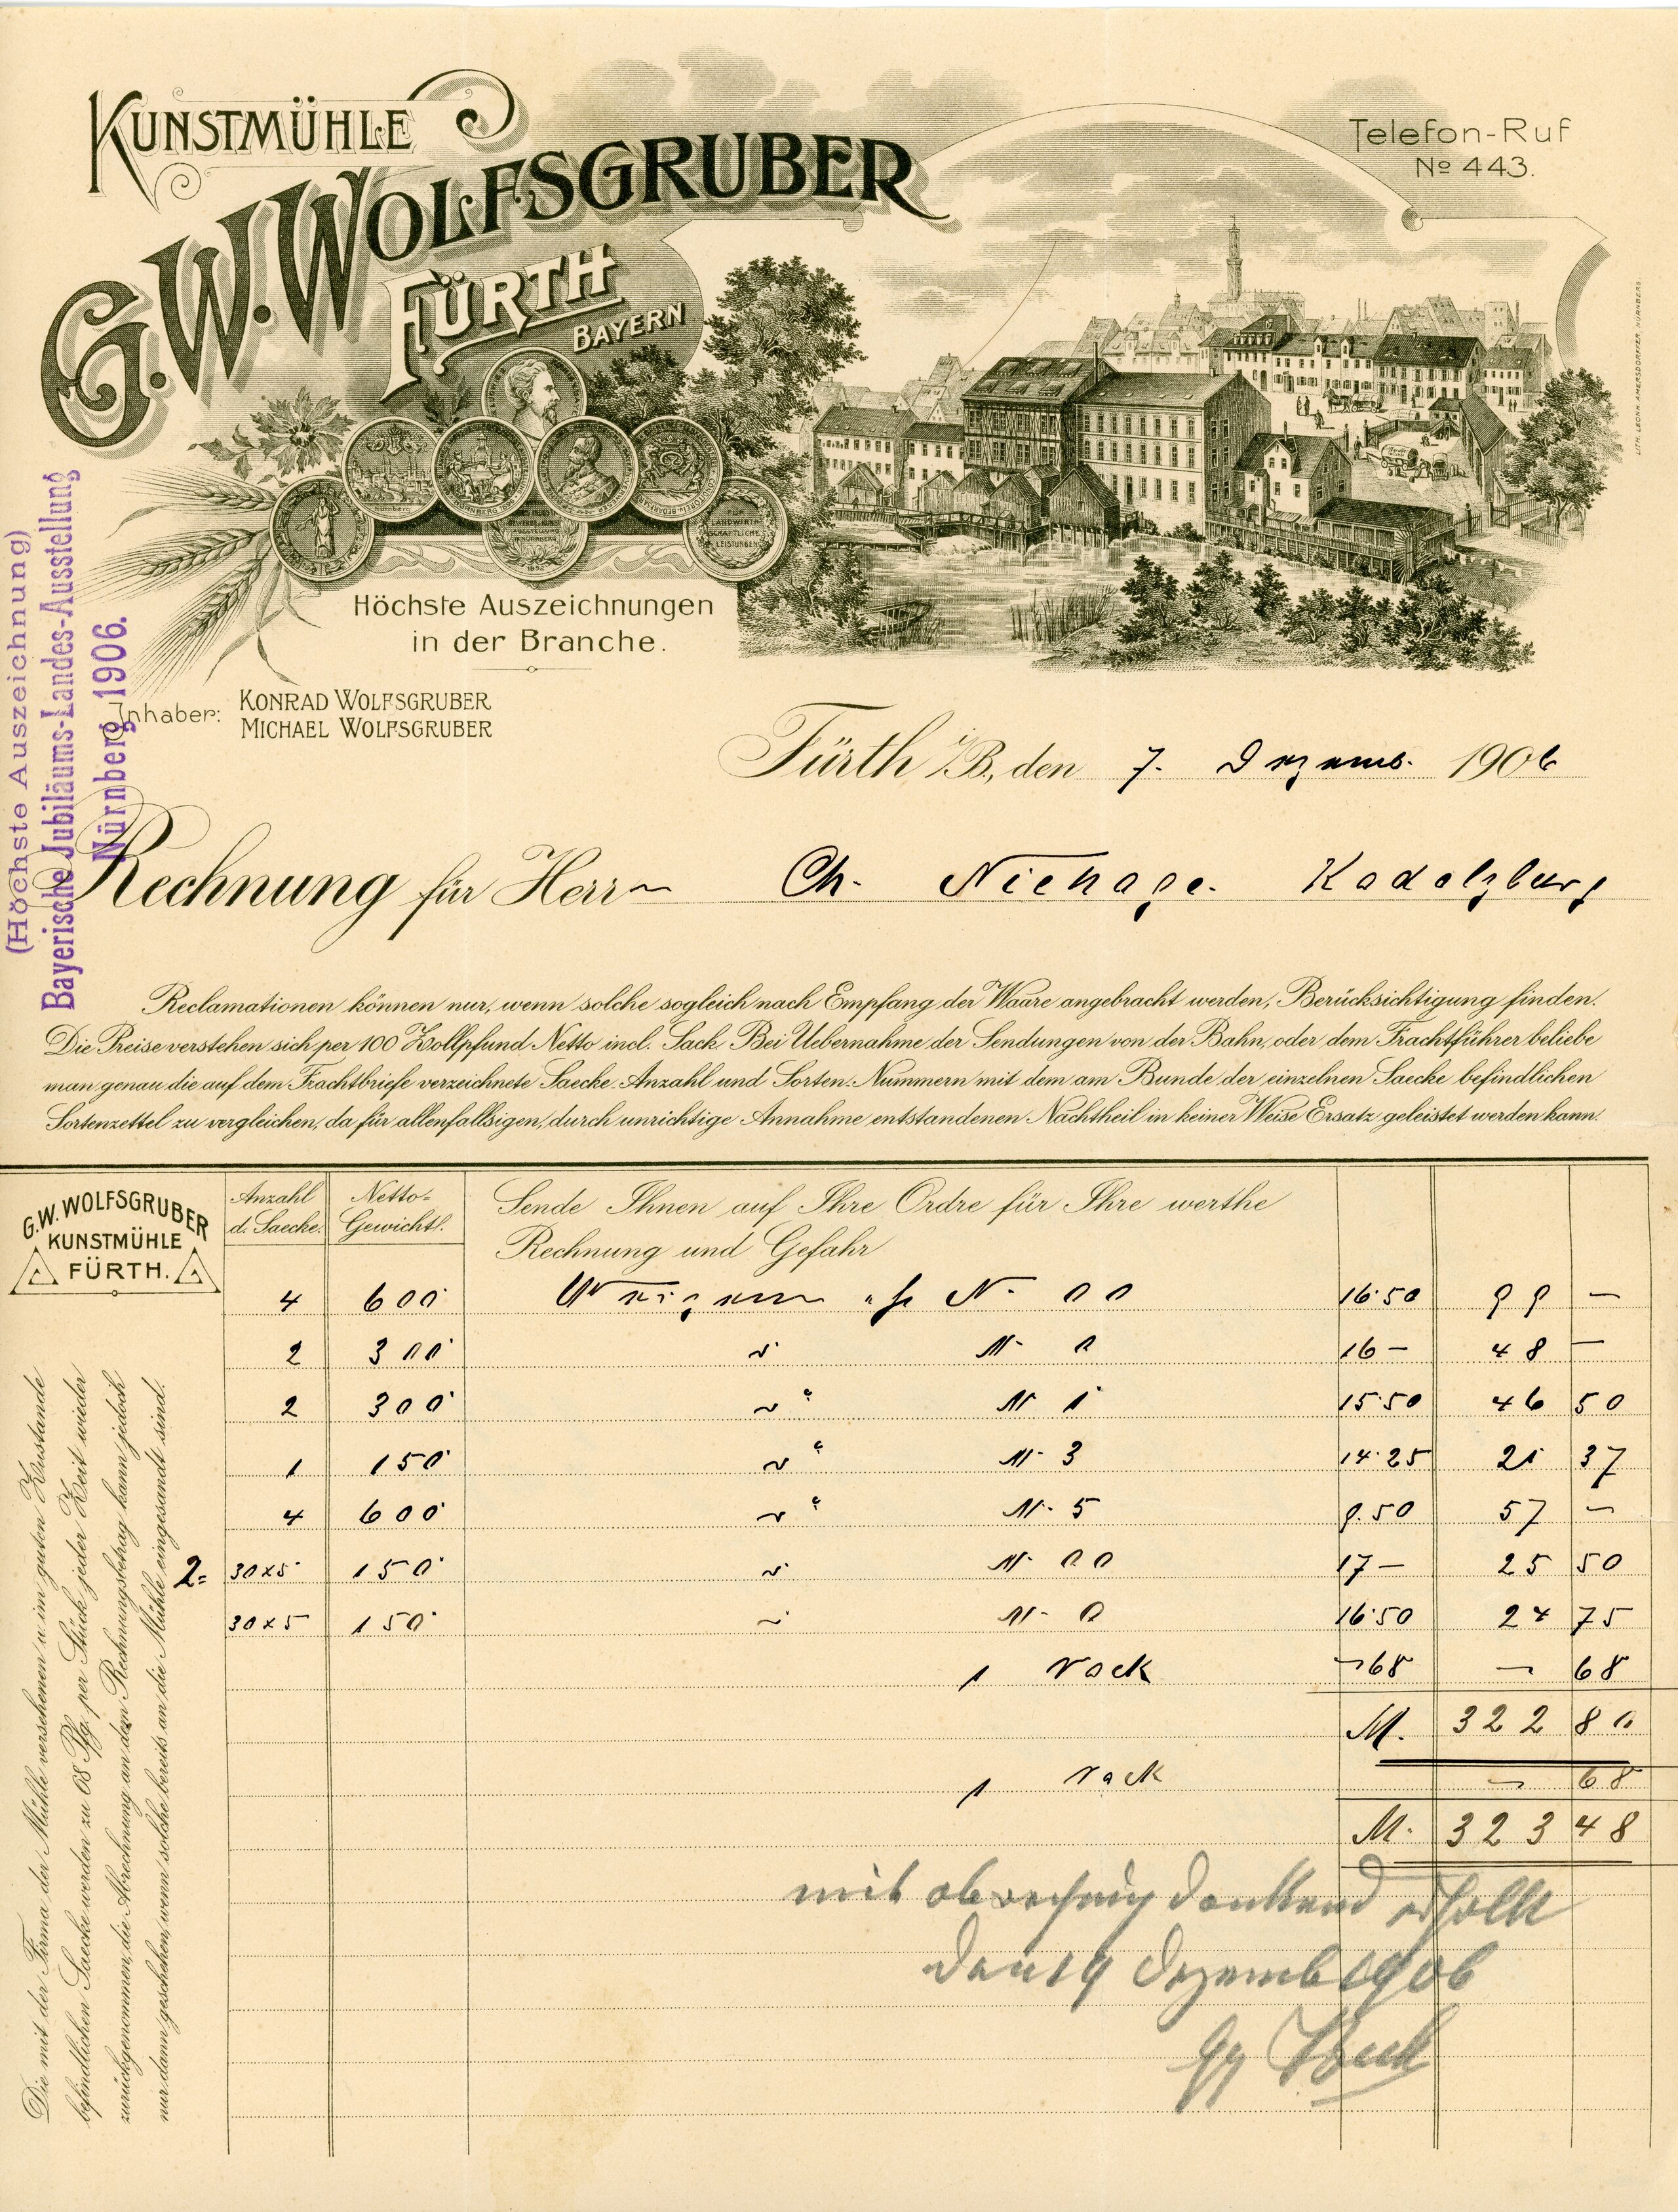 KUNSTMÜHLE
G.W. WOLFSGRUBER
FÜRTH
BAYERN
Telefon-Ruf
No 443.
LITH. LEONH. AMERSDORFFER NÜRNBERG.
FÜR
LANDWIRT
SCHAFTLICHE
LEISTUNGEN
Höchste Auszeichnungen
in der Branche.
(Höchste Auszeichnung)
Bayerische Jubiläums-Landes-Ausstellung
Nürnberg 1906.
Inhaber: KONRAD WOLFSGRUBER
MICHAEL WOLFSGRUBER
Fürth i/B., den 7. Dezemb. 1906
Rechnung für Herrn Ch. Niehage. Kadolzburg
Reclamationen können nur, wenn solche sogleich nach Empfang der Waare angebracht werden, Berücksichtigung finden.
Die Preise verstehen sich per 100 Zollpfund Netto incl. Sack. Bei Uebernahme der Sendungen von der Bahn, oder dem Frachtführer beliebe
man genau die auf dem Frachtbriefe verzeichnete Saecke-Anzahl und Sorten-Nummern mit dem am Bunde der einzelnen Saecke befindlichen
Sortenzettel zu vergleichen, da für allenfallsigen, durch unrichtige Annahme entstandenen Nachtheil in keiner Weise Ersatz geleistet werden kann.
G.W. WOLFSGRUBER
KUNSTMÜHLE
FÜRTH.
Anzahl d. Saecke. Netto-Gewicht. Sende Ihnen auf Ihre Ordre für Ihre werthe
Rechnung und Gefahr
4 600 Weizen N. 00 16.50 99 —
2 300 " N. 0 16 — 48 —
2 300 " N. 1 15.50 46 50
1 150 " N. 3 14.25 21 37
4 600 " N. 5 9.50 57 —
2= 30x5 150 " N. 00 17 — 25 50
30x5 150 " N. 0 16.50 24 75
1 Sack —68 — 68
M. 322 80
1 Sack — 68
M. 323 48
mit abrechnung dankend erhalten
den 19 Dezemb 1906
Die mit der Firma der Mühle versehenen u. im guten Zustande
befindlichen Saecke werden zu 68 Pfg. per Stück jeder Zeit wieder
zurückgenommen, die Abrechnung an dem Rechnungsbetrag kann jedoch
nur dann geschehen, wenn solche bereits an die Mühle eingesandt sind.